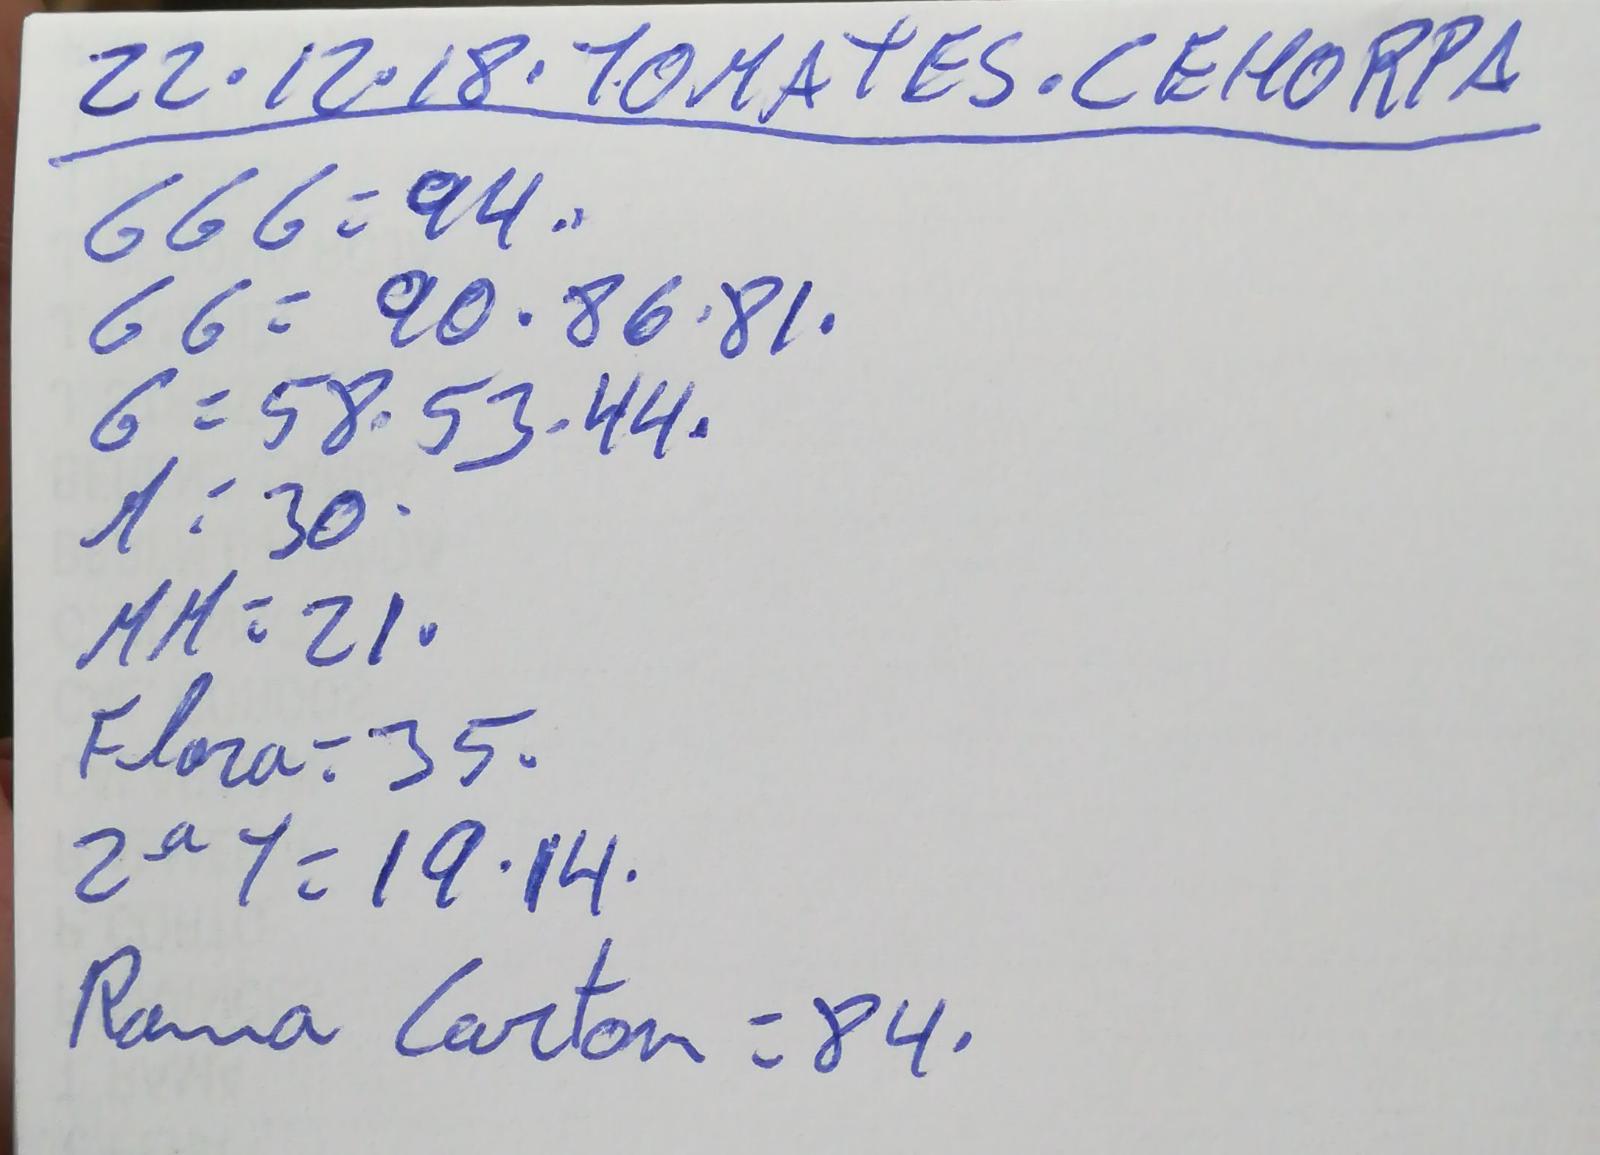 22.12.18. TOMATES. CEHORPA
GGG = 94.
GG = 90. 86. 81.
G = 58. 53. 44.
M = 30.
MM = 21.
Flora = 35.
2ª T = 19. 14.
Rama Carton = 84.